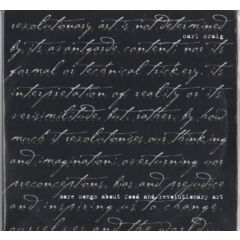 revolutionary art is not determined
carl craig
by its avantgarde content, nor its
formal or technical trickery, its
interpretation of reality or its
verisimilitude, but, rather, by how
much it revolutionises our thinking
and imagination; overturning our
preconceptions, bias and prejudice
more songs about food and revolutionary art
and inspiring us to change
ourselves and the world